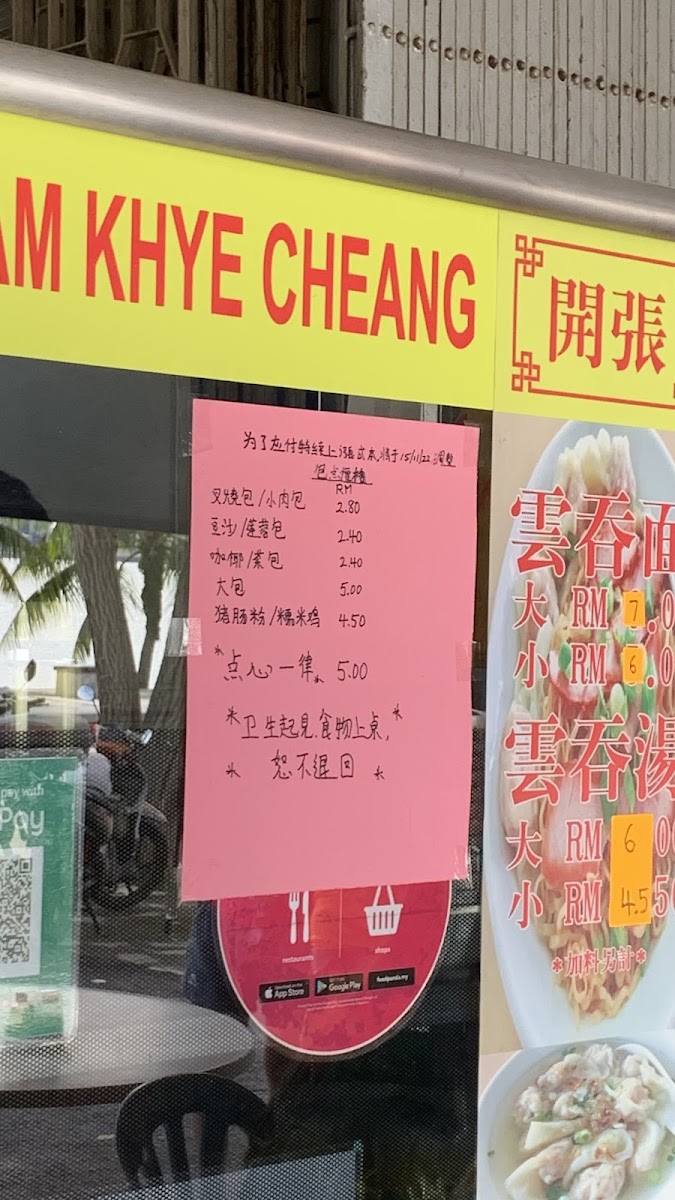 AM KHYE CHEANG
開張
为了应付持续上涨成本,将于15/11/22 调整
包点价格
RM
叉燒包/小肉包 2.80
豆沙/莲蓉包 2.40
咖椰/菜包 2.40
大包 5.00
猪肠粉/糯米鸡 4.50
*点心一律* 5.00
*卫生起见,食物上桌,*
* 恕不退回 *
雲吞面
大 RM 7.0
小 RM 6.0
雲吞湯
大 RM 6 00
小 RM 4.5 50
*加料另計*
pay with
Pay
restaurants
shops
App Store
Google Play
foodpanda.my